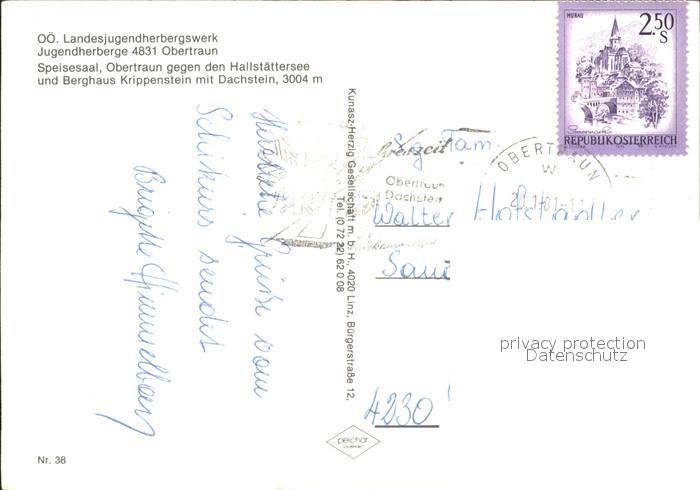 OÖ. Landesjugendherbergswerk
Jugendherberge 4831 Obertraun
Speisesaal, Obertraun gegen den Hallstättersee
und Berghaus Krippenstein mit Dachstein, 3004 m
Herzliche Grüße vom
Schikurs sendet
Brigitte
Kunasz-Herzig Gesellschaft m. b. H., 4020 Linz, Bürgerstraße 12,
Tel. (0 72 22) 62 0 08
MURAU
2.50
S
REPUBLIK ÖSTERREICH
OBERTRAUN
Obertraun
Dachstein
Fam.
Walter
4230
privacy protection
Datenschutz
peichär
Nr. 38